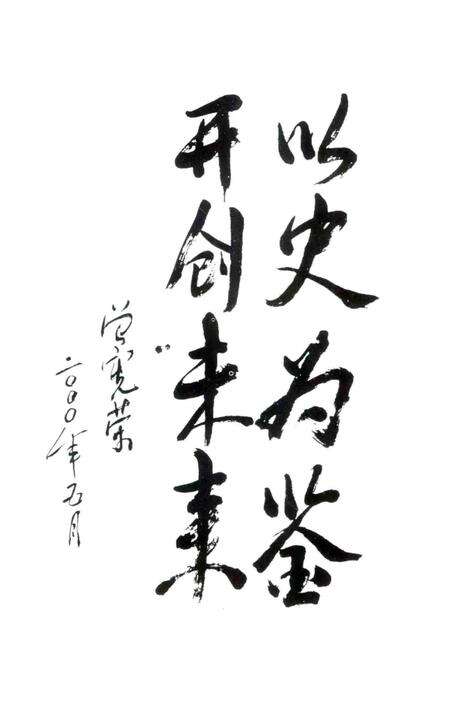 以史为鉴
开创未来
曾宪荣
二〇〇〇年五月